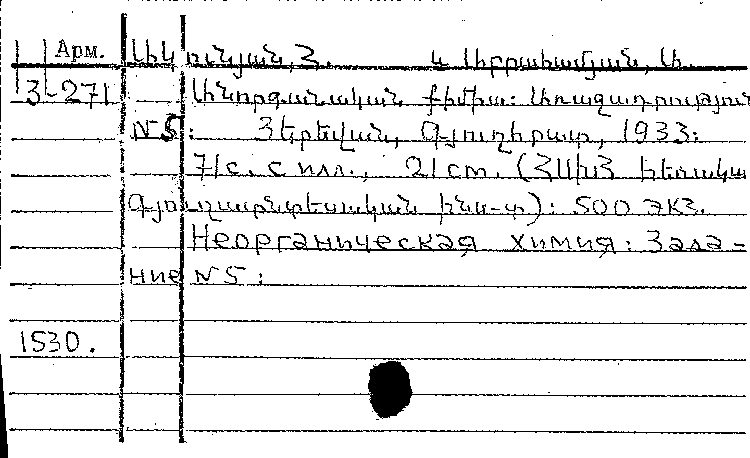 Арм. Ակունյան, Հ. և Աբրահամյան, Ա.
3-271 Անօրգանական քիմիա: Առաջադրություն
N 5: Յերեվան, Գյուղհրատ, 1933:
71с. с илл., 21 cm. (ՀՍԽՀ հեռակա
Գյուղատնտեսական ինս-տ): 500 экз.
Неорганическая химия: Зада-
ние N 5:
1530.